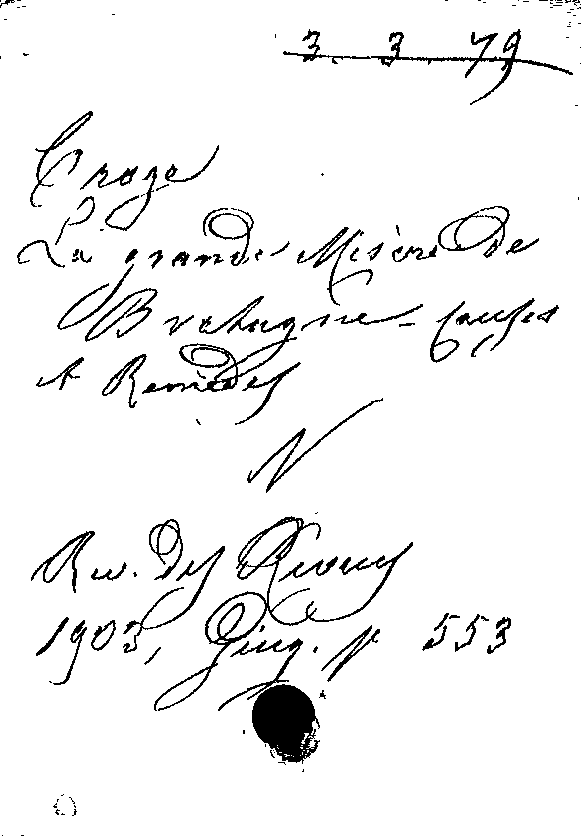 3. 3. 79
Croze
La grande Misère de
Bretagne - Causes
et Remèdes
N
Rev. des Revues
1903, p. 553